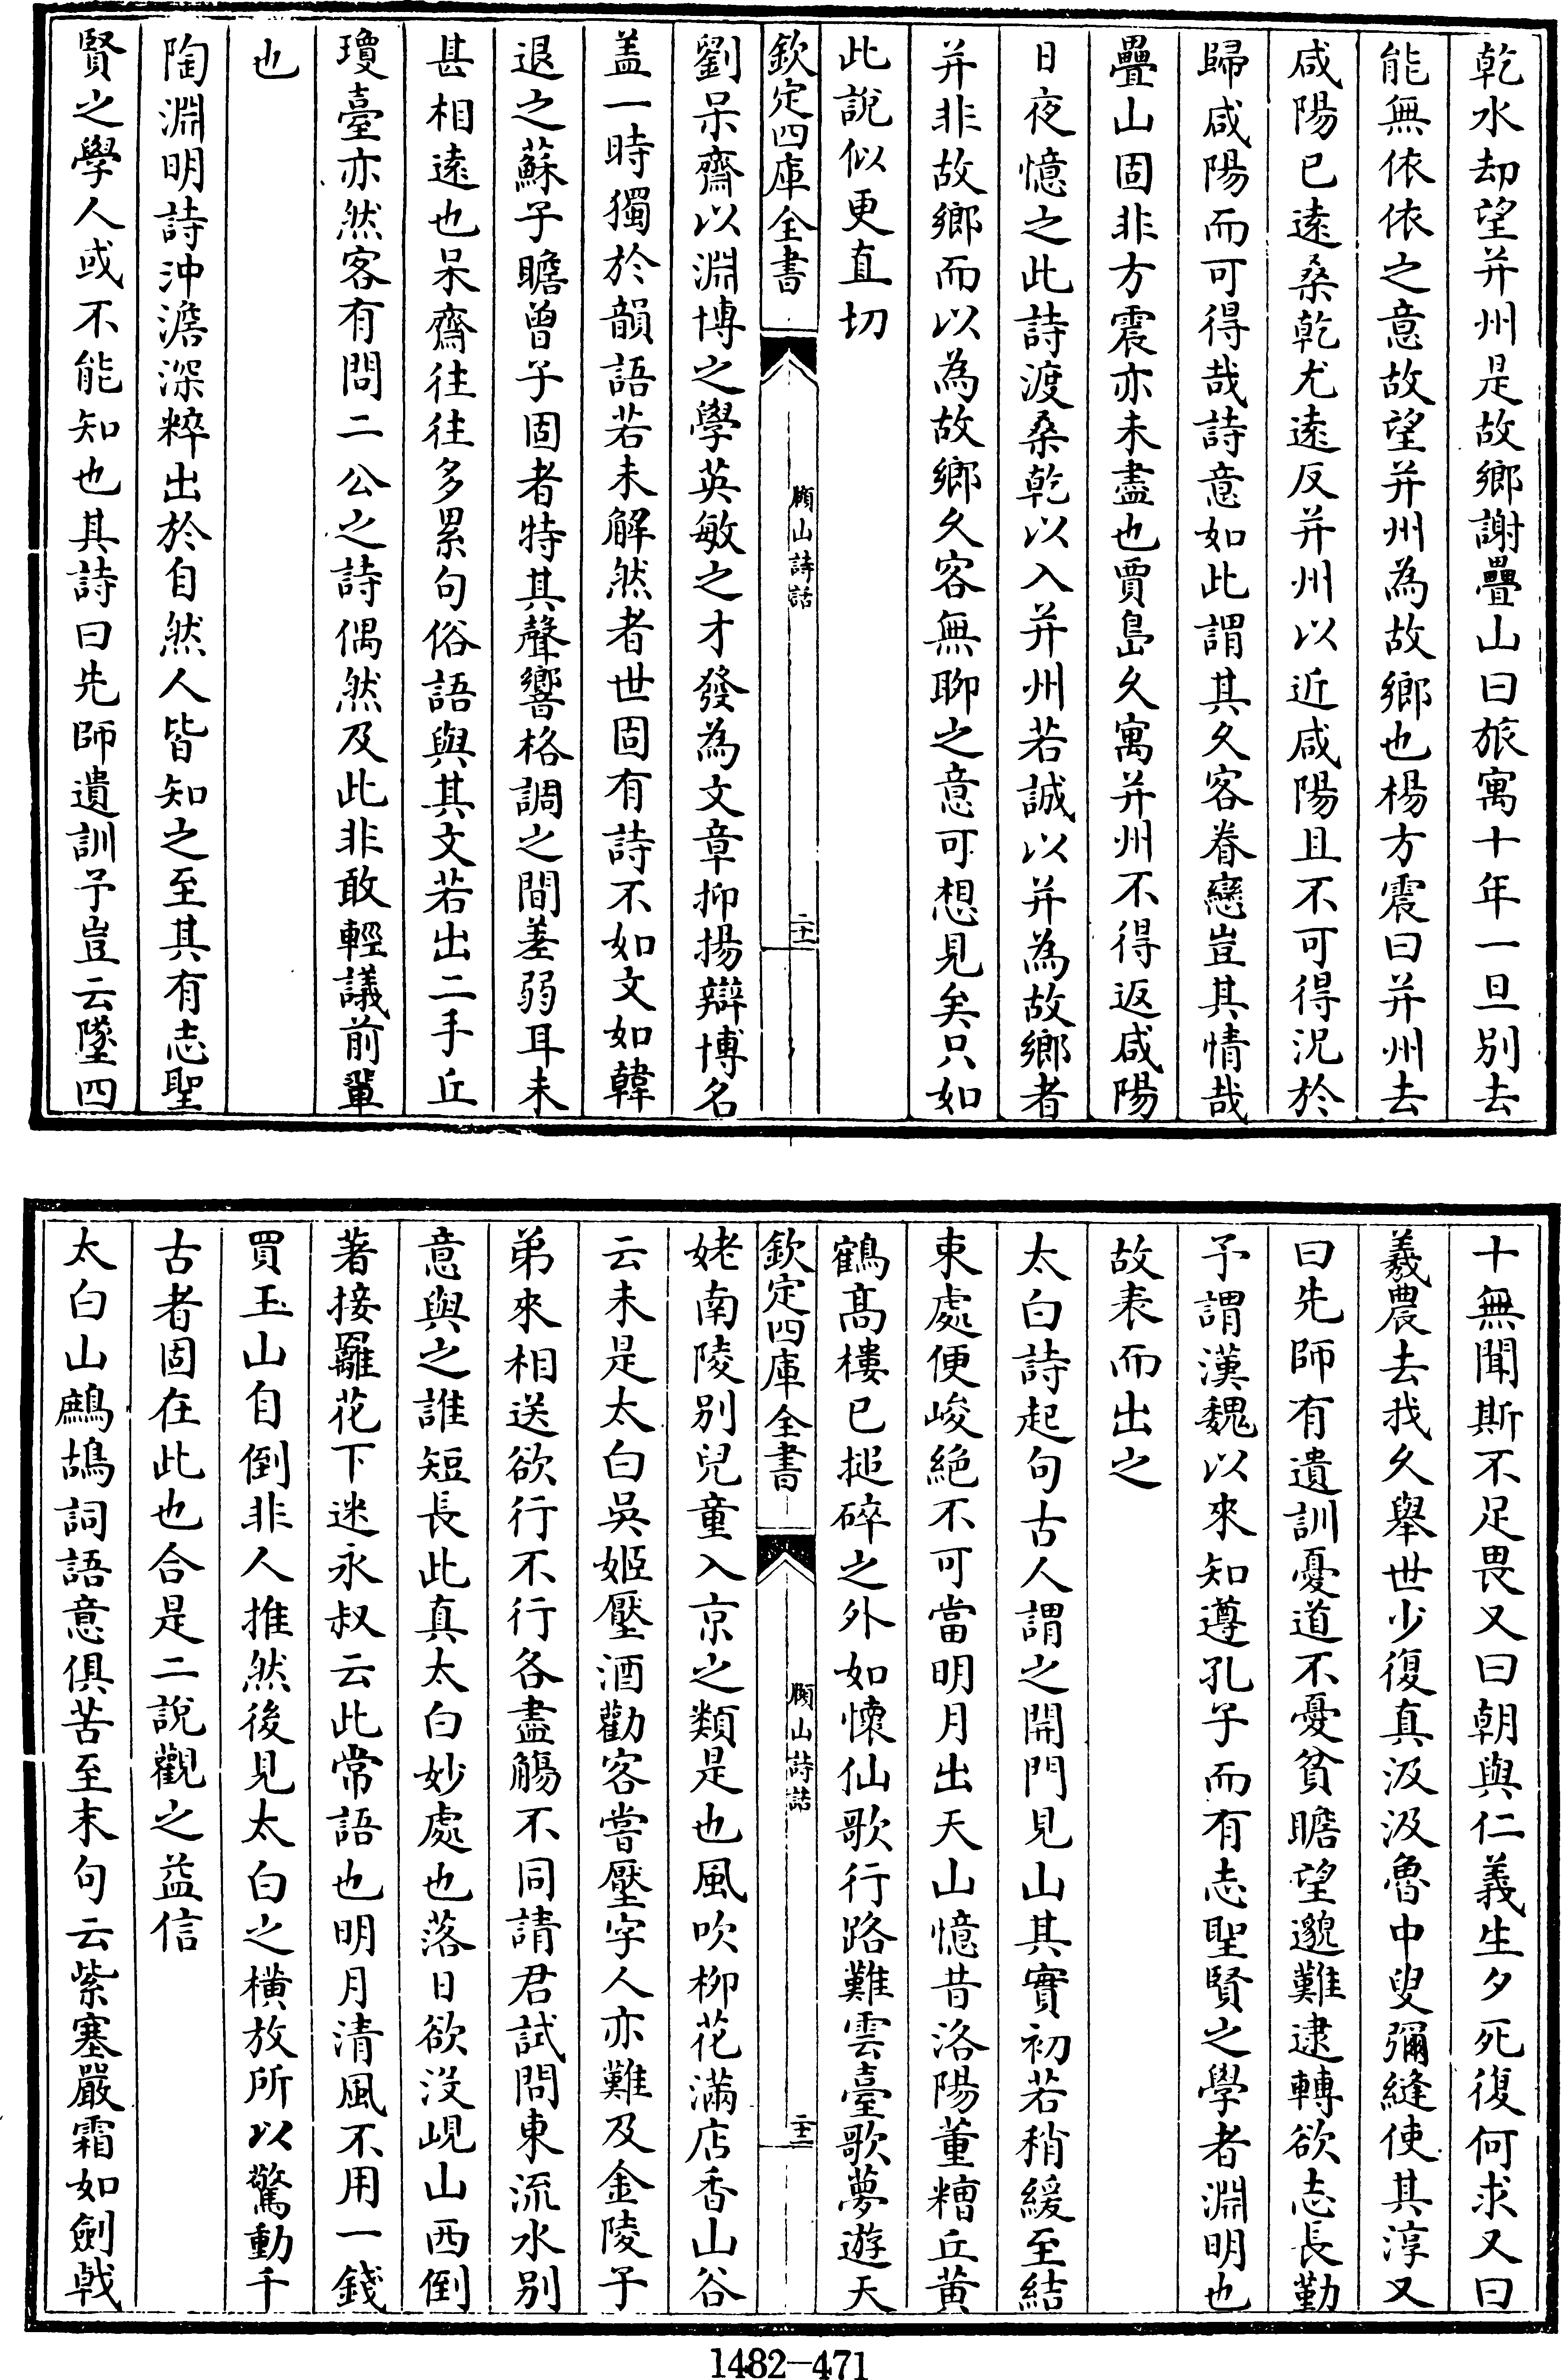 乾水却望并州是故鄉謝疊山曰旅寓十年一旦別去
能無依依之意故望并州為故鄉也楊方震曰并州去
咸陽已遠桑乾尤遠反并州以近咸陽且不可得況於
歸咸陽而可得哉詩意如此謂其久客眷戀豈其情哉
疊山固非方震亦未盡也賈島久寓并州不得返咸陽
日夜憶之此詩渡桑乾以入并州若誠以并為故鄉者
并非故鄉而以為故鄉久客無聊之意可想見矣只如
此說似更直切
欽定四庫全書
頤山詩話
二十一
劉呆齋以淵博之學英敏之才發為文章抑揚辯博名
盖一時獨於韻語若未解然者世固有詩不如文如韓
退之蘇子瞻曾子固者特其聲響格調之間差弱耳未
甚相遠也呆齋往往多累句俗語與其文若出二手丘
瓊臺亦然客有問二公之詩偶然及此非敢輕議前輩
也
陶淵明詩沖澹深粹出於自然人皆知之至其有志聖
賢之學人或不能知也其詩曰先師遺訓予豈云墜四
十無聞斯不足畏又曰朝與仁義生夕死復何求又曰
羲農去我久舉世少復真汲汲魯中叟彌縫使其淳又
曰先師有遺訓憂道不憂貧瞻望邈難逮轉欲志長勤
予謂漢魏以來知遵孔子而有志聖賢之學者淵明也
故表而出之
太白詩起句古人謂之開門見山其實初若稍緩至結
束處便峻絶不可當明月出天山憶昔洛陽董糟丘黄
鶴髙樓已搥碎之外如懷仙歌行路難雲臺歌夢遊天
欽定四庫全書
頤山詩話
二十二
姥南陵別兒童入京之類是也風吹柳花滿店香山谷
云未是太白吳姬壓酒勸客嘗壓字人亦難及金陵子
弟來相送欲行不行各盡觴不同請君試問東流水別
意與之誰短長此真太白妙處也落日欲沒峴山西倒
著接䍦花下迷永叔云此常語也明月清風不用一錢
買玉山自倒非人推然後見太白之橫放所以驚動千
古者固在此也合是二說觀之益信
太白山鷓鴣詞語意俱苦至末句云紫塞嚴霜如劍戟
1482—471